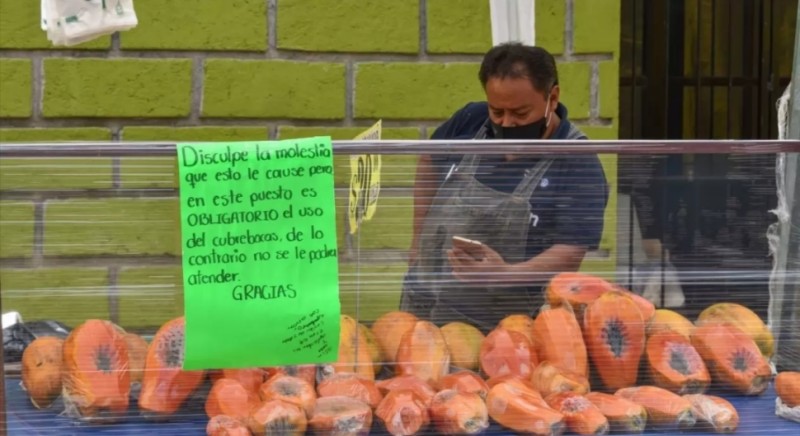 Disculpe la molestia
que esto le cause pero
en este puesto es
OBLIGATORIO el uso
del cubrebocas, de lo
contrario no se le podra
atender.
GRACIAS
$20